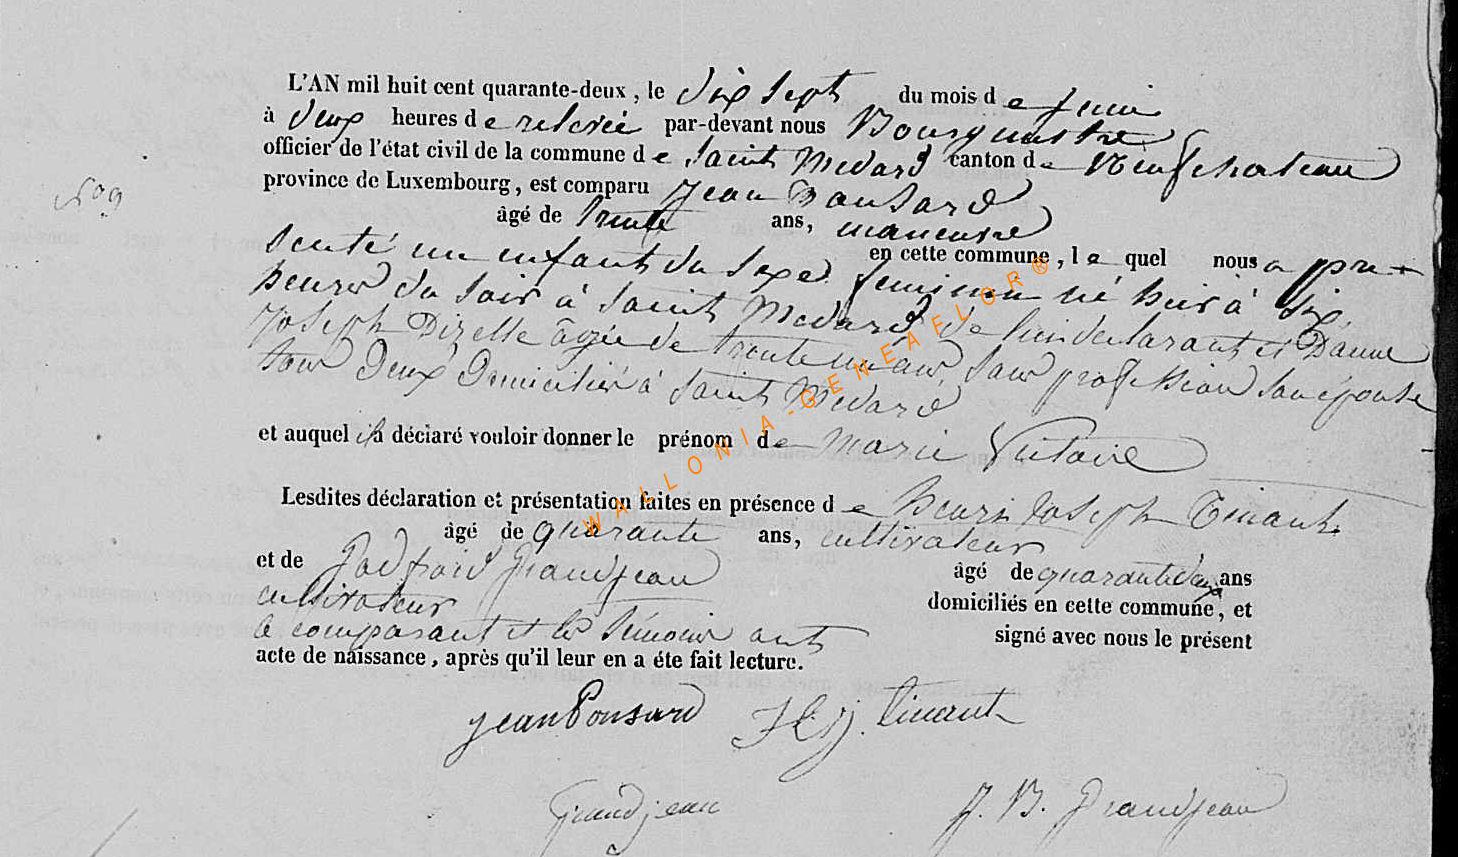 L'AN mil huit cent quarante-deux, le dix sept du mois de juin
à deux heures de relevée par-devant nous Bourguastre
officier de l'état civil de la commune de Saint Medard canton de Neufchateau
N° 9
province de Luxembourg, est comparu Jean Ponsard
âgé de trente ans, manœuvre
en cette commune, lequel nous a pré-
senté un enfant du sexe feminin né hier à six
heures du soir à Saint Medard de lui declarant et Danne
Joseph Dizelle âgée de trente un ans sans profession son épouse
tous deux domiciliés à Saint Medard
et auquel il a déclaré vouloir donner le prénom de Marie Victoire
Lesdites déclaration et présentation faites en présence de Henri Joseph Tinant
âgé de quarante ans, cultivateur
et de Godfroid Grandjean âgé de quarante deux ans
cultivateur domiciliés en cette commune, et
le comparant et les témoins ont signé avec nous le présent
acte de naissance, après qu'il leur en a éte fait lecture.
Jean Ponsard H. J. Tinant
Grandjean J. B. Grandjean
WALLONIA-GENEAFLOR®